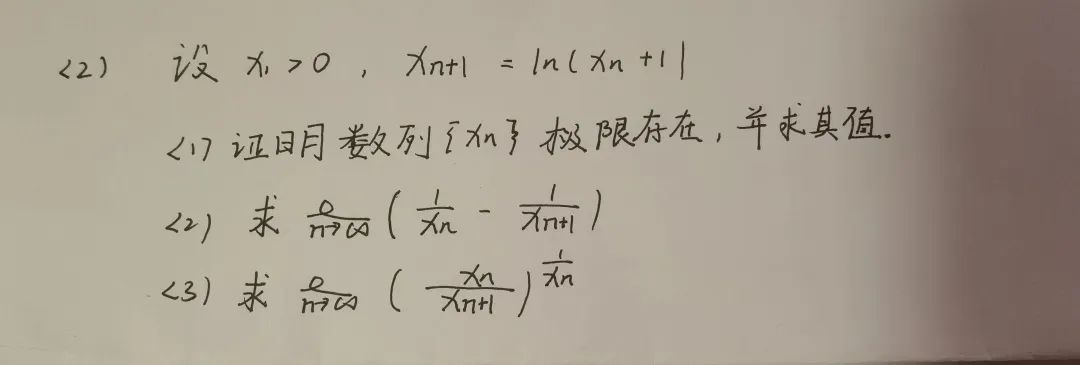 <2) 设 x₁ > 0 , xₙ₊₁ = ln( xₙ + 1 |
<1) 证明数列{xₙ}极限存在, 并求其值.
<2) 求 lim n→∞ ( 1/xₙ - 1/xₙ₊₁ )
<3) 求 lim n→∞ ( xₙ/xₙ₊₁ )^(1/xₙ)